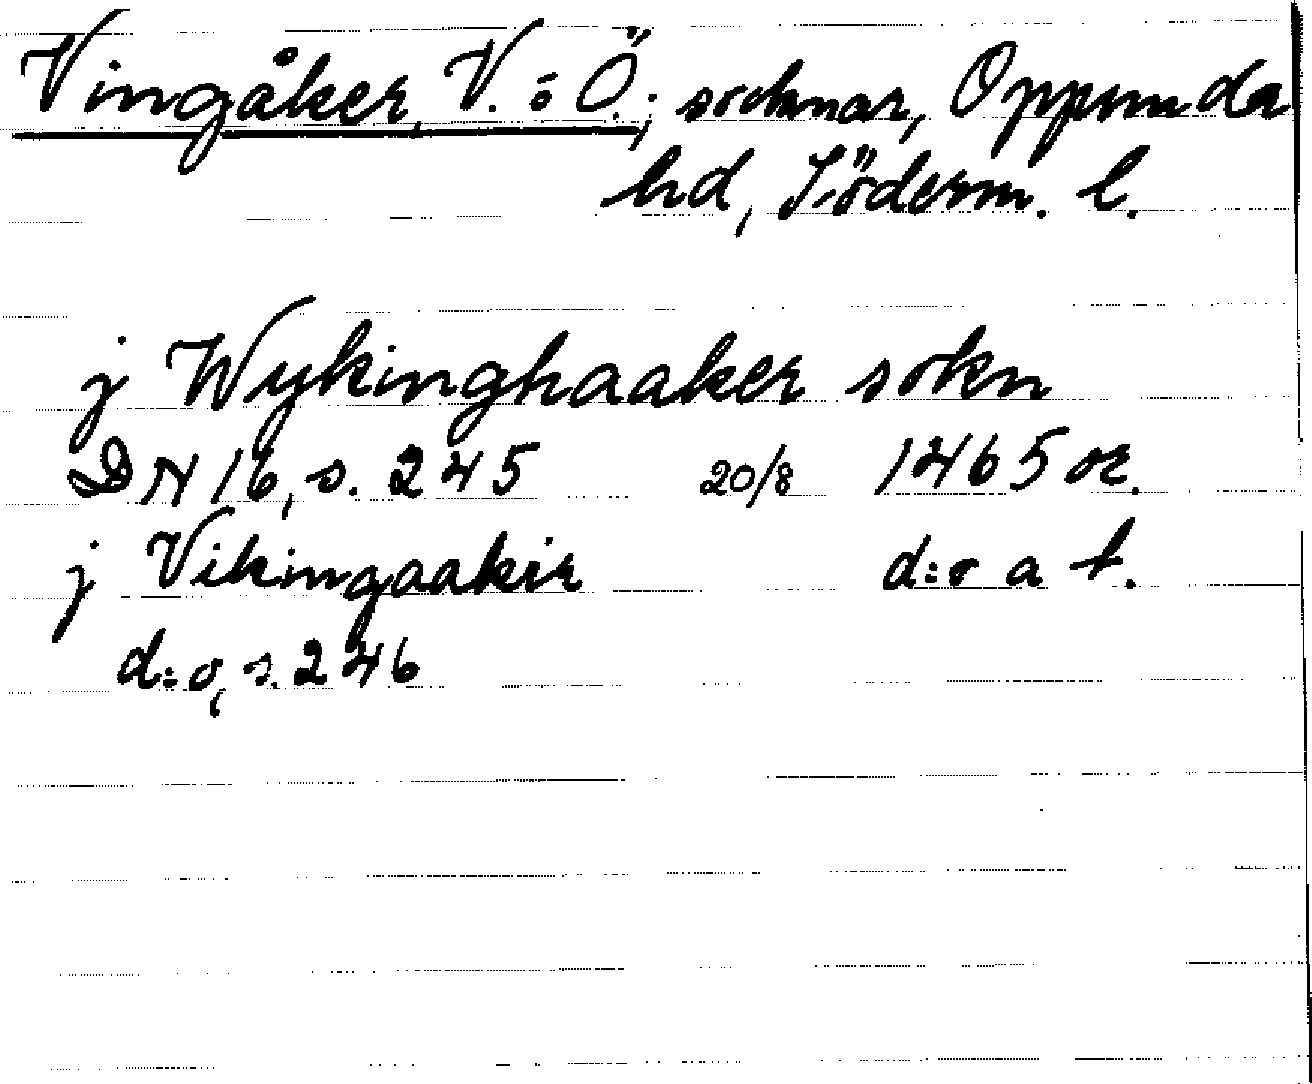 Vingåker, V. o Ö., socknar, Oppunda
hd, Söderm. l.
j Wykinghaaker sokn
DN 16, s. 245 20/8 1465 or.
j Vikingaakir d:o a t.
d:o, s. 246